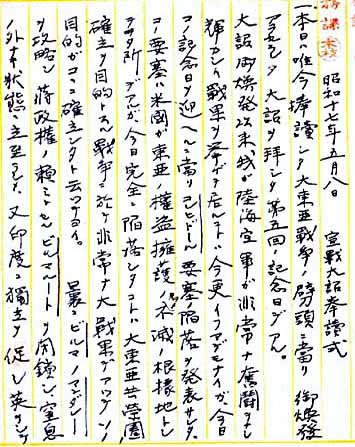 務課
昭和十七年五月八日 宣戰大詔奉讀式
一本日ハ唯今捧讀シタ大東亜戰爭ノ劈頭ニ當リ 御煥發
アラセラレタ大詔ヲ拝シタ第五回ノ記念日デアル。
大詔御煥発以来、我ガ陸海空軍ガ非常ナ奮闘ヲナシ
輝カシイ戰果ヲ挙ゲテ居ルコトハ今更イフマデモナイガ、今日
コノ記念日ヲ迎ヘルニ當リコレヒドール要塞ノ陥落ガ発表サレタ。
コノ要塞ハ米國ガ東亜ノ權益擁護ノ為不滅ノ根據地トシ
タ所デアルガ、今日完全ニ陥落シタコトハ大東亜共榮圏
確立ヲ目的トスル戰爭ニ於テ非常ナ大戰果デアツテソノ
目的ガココニ確立シタト云ツテヨイ。 曩ニビルマノマンダレー
ヲ攻略シ蒋政權ノ頼ミトセルビルマルートヲ閉鎖シ窒息
ノ外ナキ状態ニ立至ラシメ、又印度ニ獨立ヲ促シ英ヲシテ